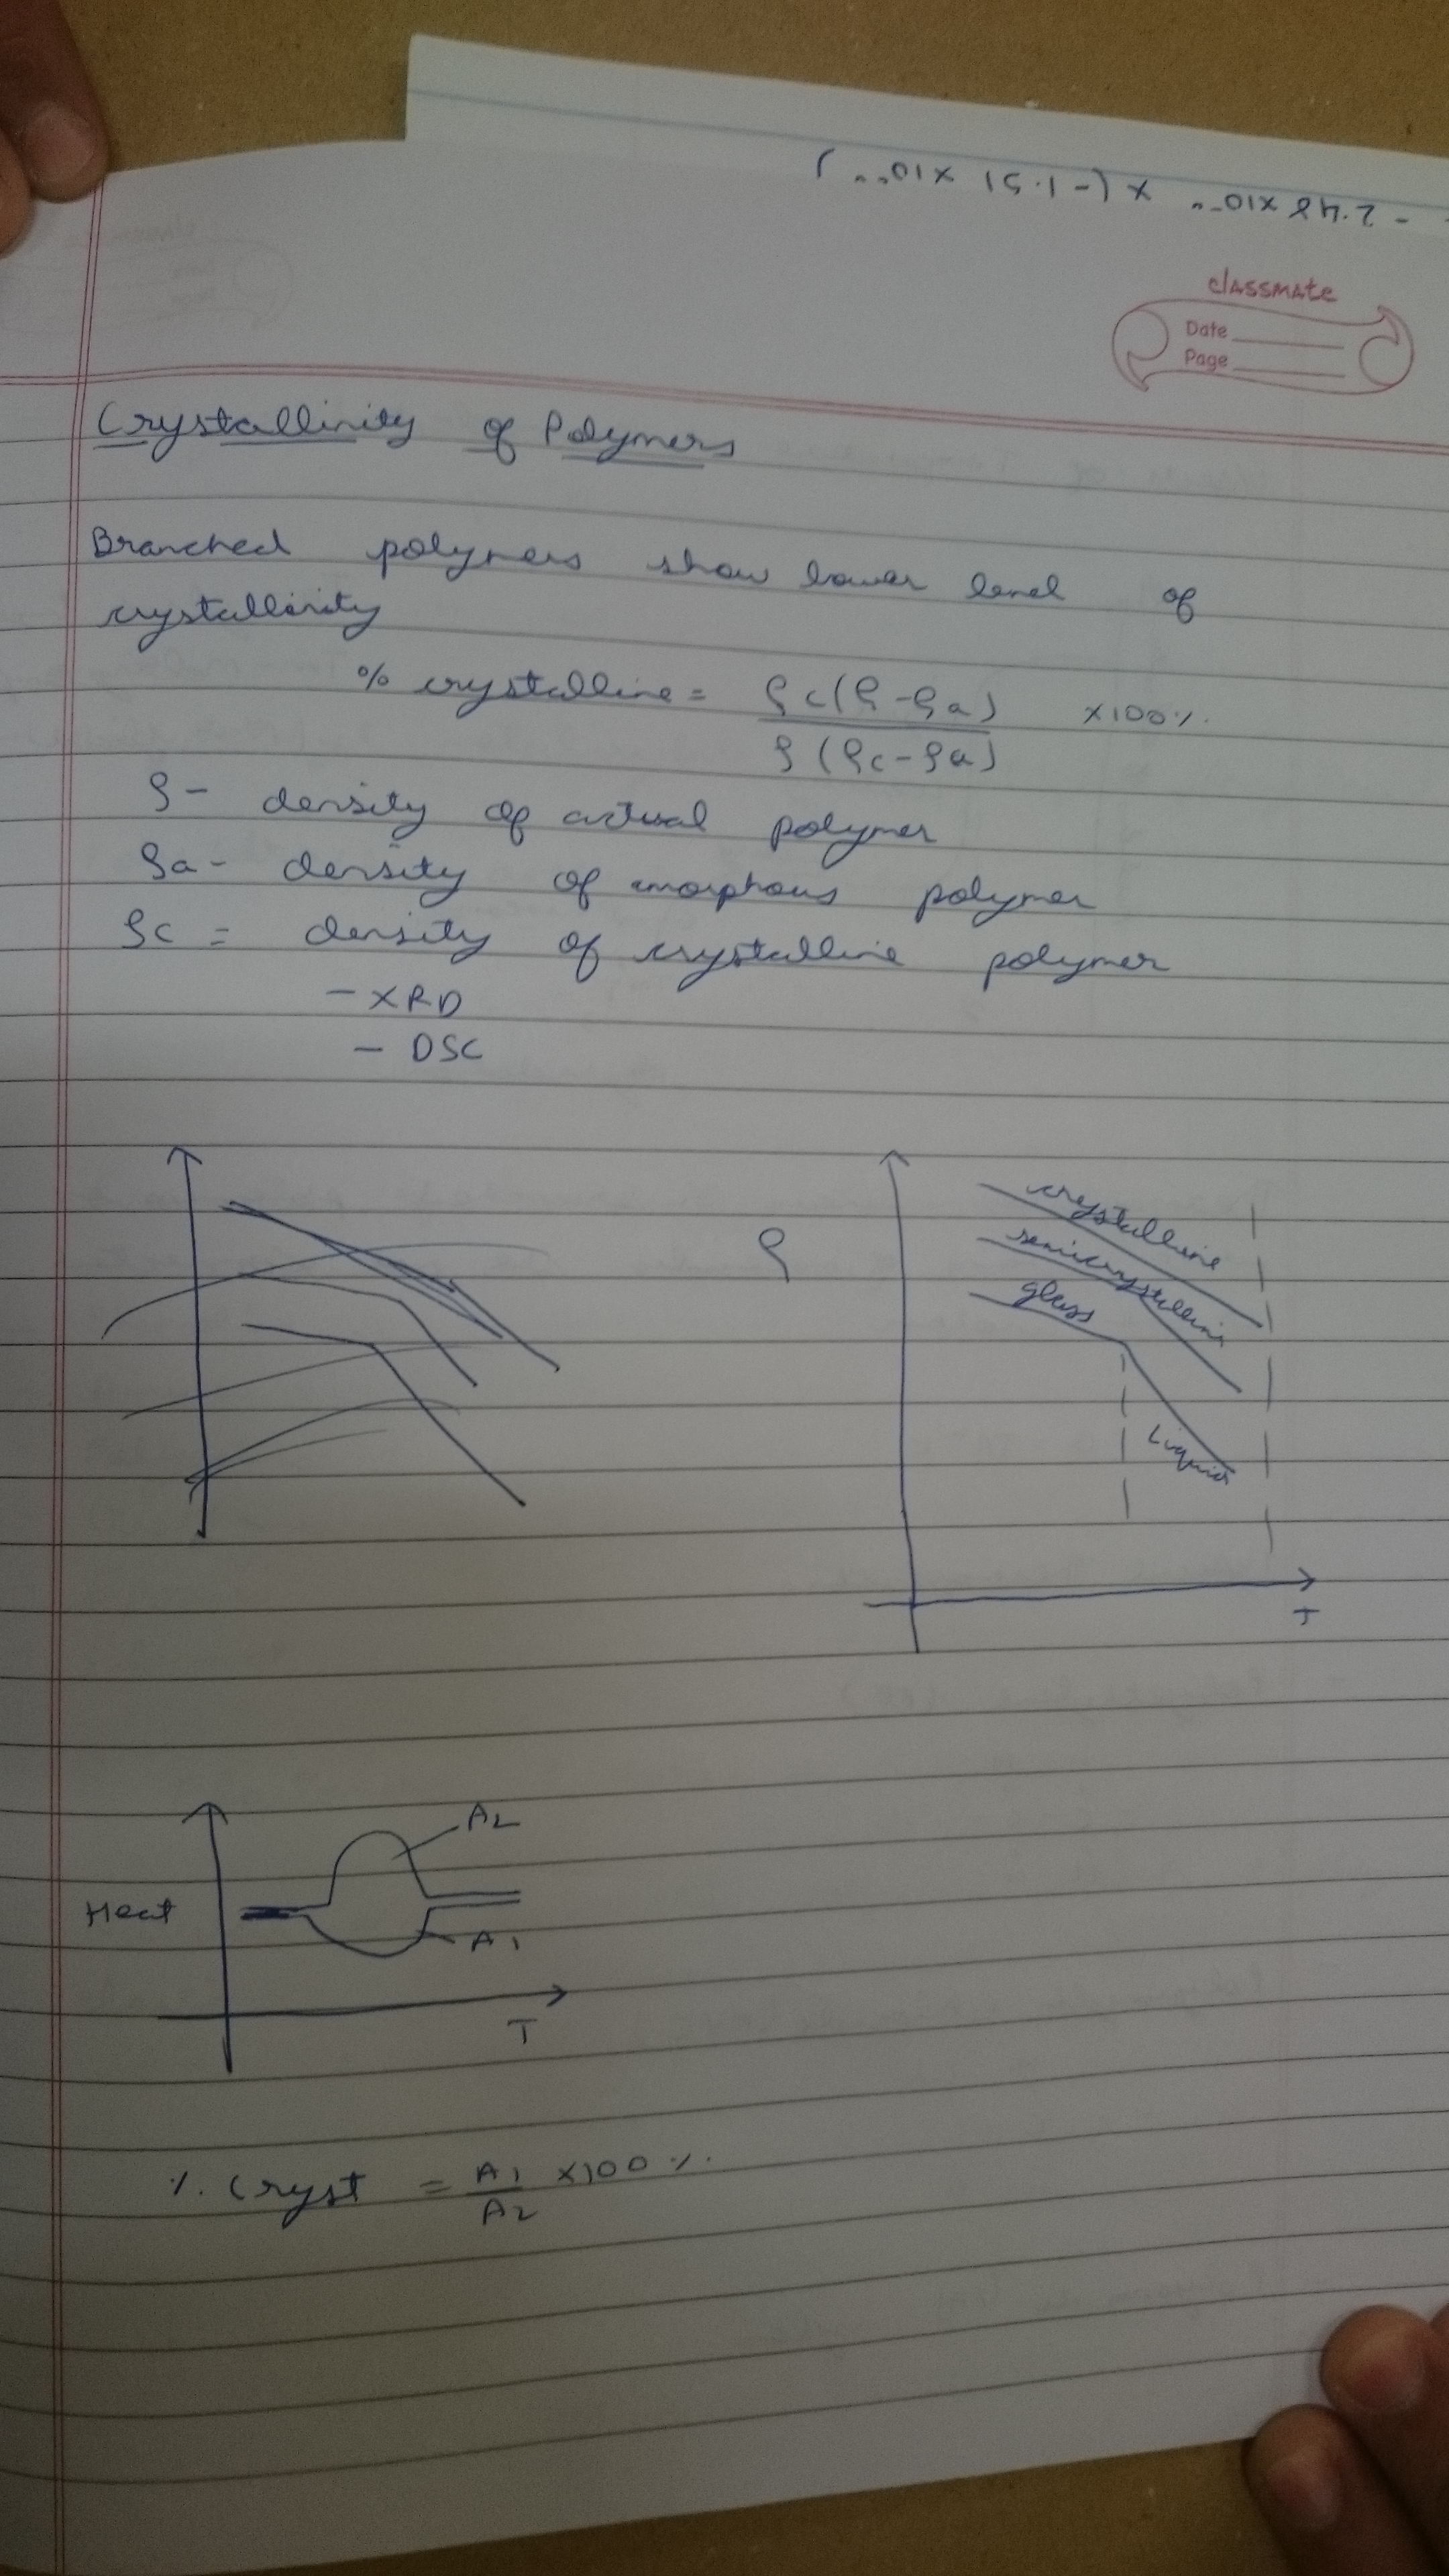 - 2.48 x10⁻ x (- 1.51 x10
classmate
Date
Page
Crystallinity of Polymers
Branched polymers show lower level of
crystallinity
% crystalline = ρc(ρ-ρa) x100%
ρ(ρc-ρa)
ρ- density of actual polymer
ρa- density of amorphous polymer
ρc = density of crystalline polymer
- XRD
- DSC
ρ
crystalline
semicrystalline
glass
Liquid
T
A2
Heat
A1
T
% Cryst = A1 x100%
A2